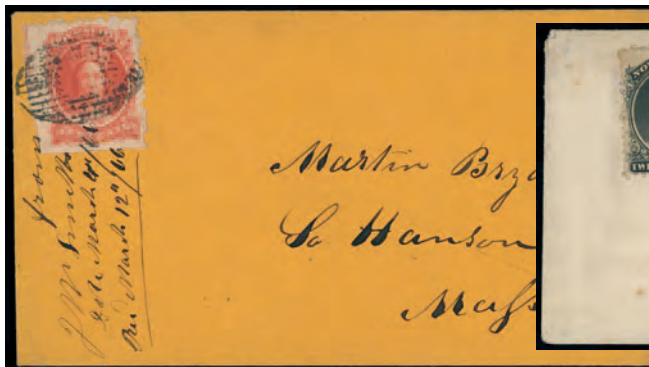 from
J W Smith
Date March 4th/66
Recd March 12th/66
Martin Brya
So Hanson
Mass
NOV
TWE